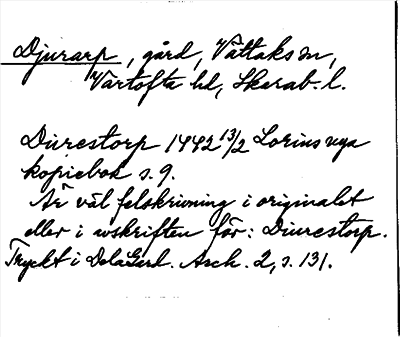 Djurarp, gård, Vättaks sn,
Vartofta hd, Skarab. l.
Durestorp 1442 13/2 Lorins nya
kopiebok s. 9.
Är väl felskrivning i originalet
eller i avskriften för: Diurestorp.
Tryckt i DelaGard. Arch. 2, s. 131.